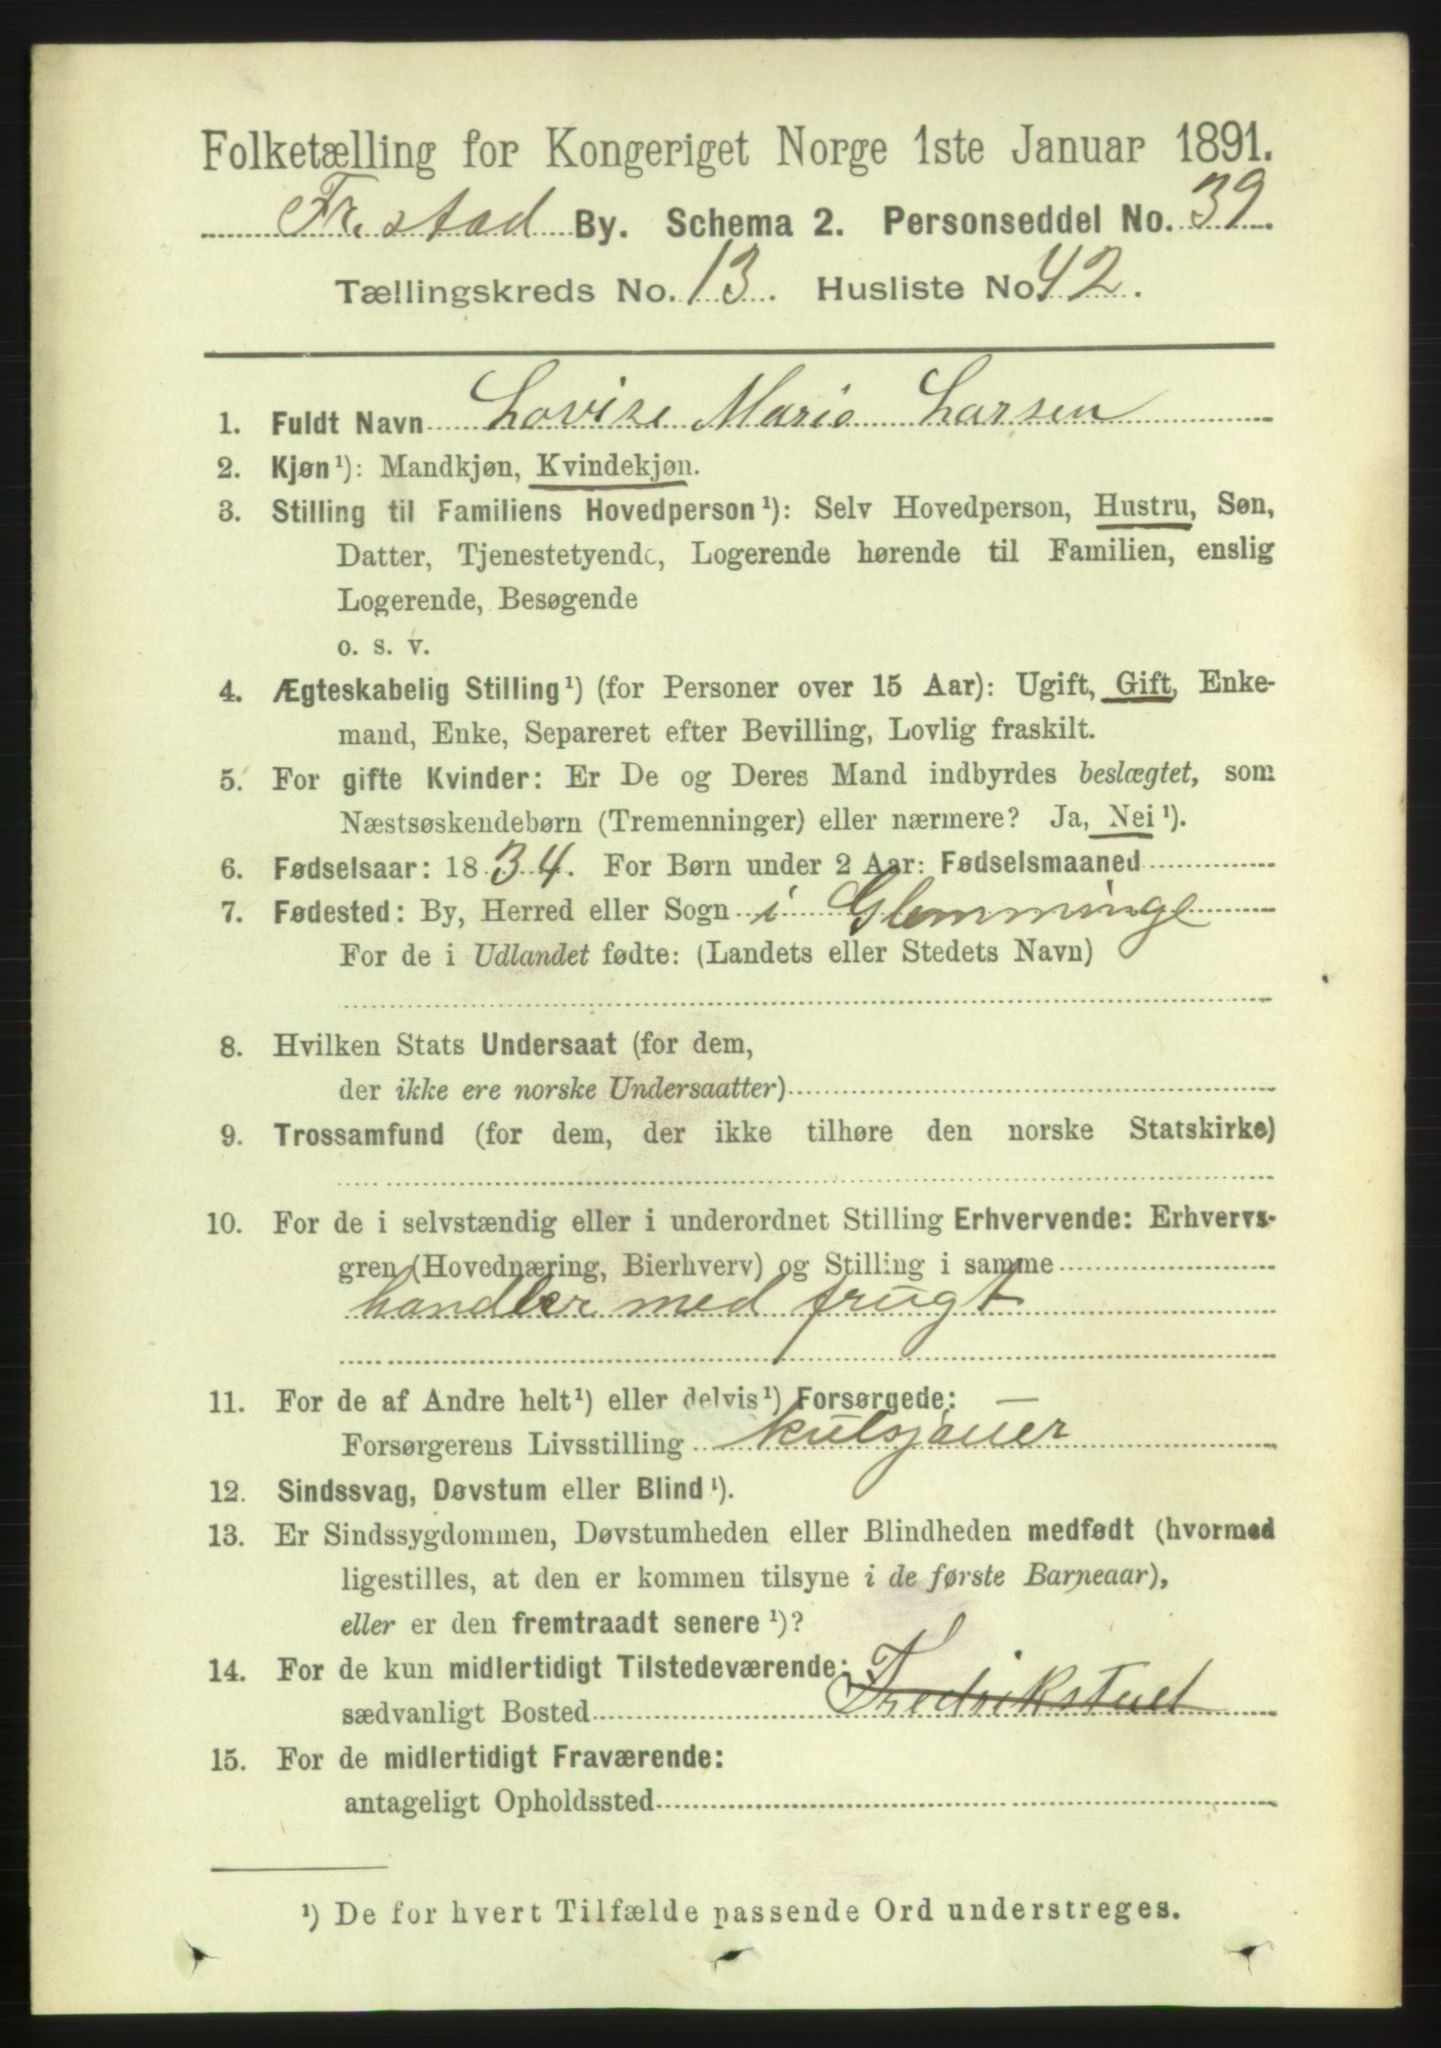 Folketælling for Kongeriget Norge 1ste Januar 1891.
Fr.stad By. Schema 2. Personseddel No. 39.
Tællingskreds No. 13. Husliste No. 42.
1. Fuldt Navn Lovise Marie Larsen
2. Kjøn¹): Mandkjøn, Kvindekjøn.
3. Stilling til Familiens Hovedperson¹): Selv Hovedperson, Hustru, Søn,
Datter, Tjenestetyende, Logerende hørende til Familien, enslig
Logerende, Besøgende
o. s. v.
4. Ægteskabelig Stilling¹) (for Personer over 15 Aar): Ugift, Gift, Enke-
mand, Enke, Separeret efter Bevilling, Lovlig fraskilt.
5. For gifte Kvinder: Er De og Deres Mand indbyrdes beslægtet, som
Næstsøskendebørn (Tremenninger) eller nærmere? Ja, Nei¹).
6. Fødselsaar: 1834. For Børn under 2 Aar: Fødselsmaaned
7. Fødested: By, Herred eller Sogn i Glemminge
For de i Udlandet fødte: (Landets eller Stedets Navn)
8. Hvilken Stats Undersaat (for dem,
der ikke ere norske Undersaatter)
9. Trossamfund (for dem, der ikke tilhøre den norske Statskirke)
10. For de i selvstændig eller i underordnet Stilling Erhvervende: Erhvervs-
gren (Hovednæring, Bierhverv) og Stilling i samme
handler med frugt
11. For de af Andre helt¹) eller delvis¹) Forsørgede:
Forsørgerens Livsstilling kulsjauer
12. Sindssvag, Døvstum eller Blind¹).
13. Er Sindssygdommen, Døvstumheden eller Blindheden medfødt (hvormed
ligestilles, at den er kommen tilsyne i de første Barneaar),
eller er den fremtraadt senere¹)?
14. For de kun midlertidigt Tilstedeværende:
sædvanligt Bosted Fredrikstad
15. For de midlertidigt Fraværende:
antageligt Opholdssted
¹) De for hvert Tilfælde passende Ord understreges.